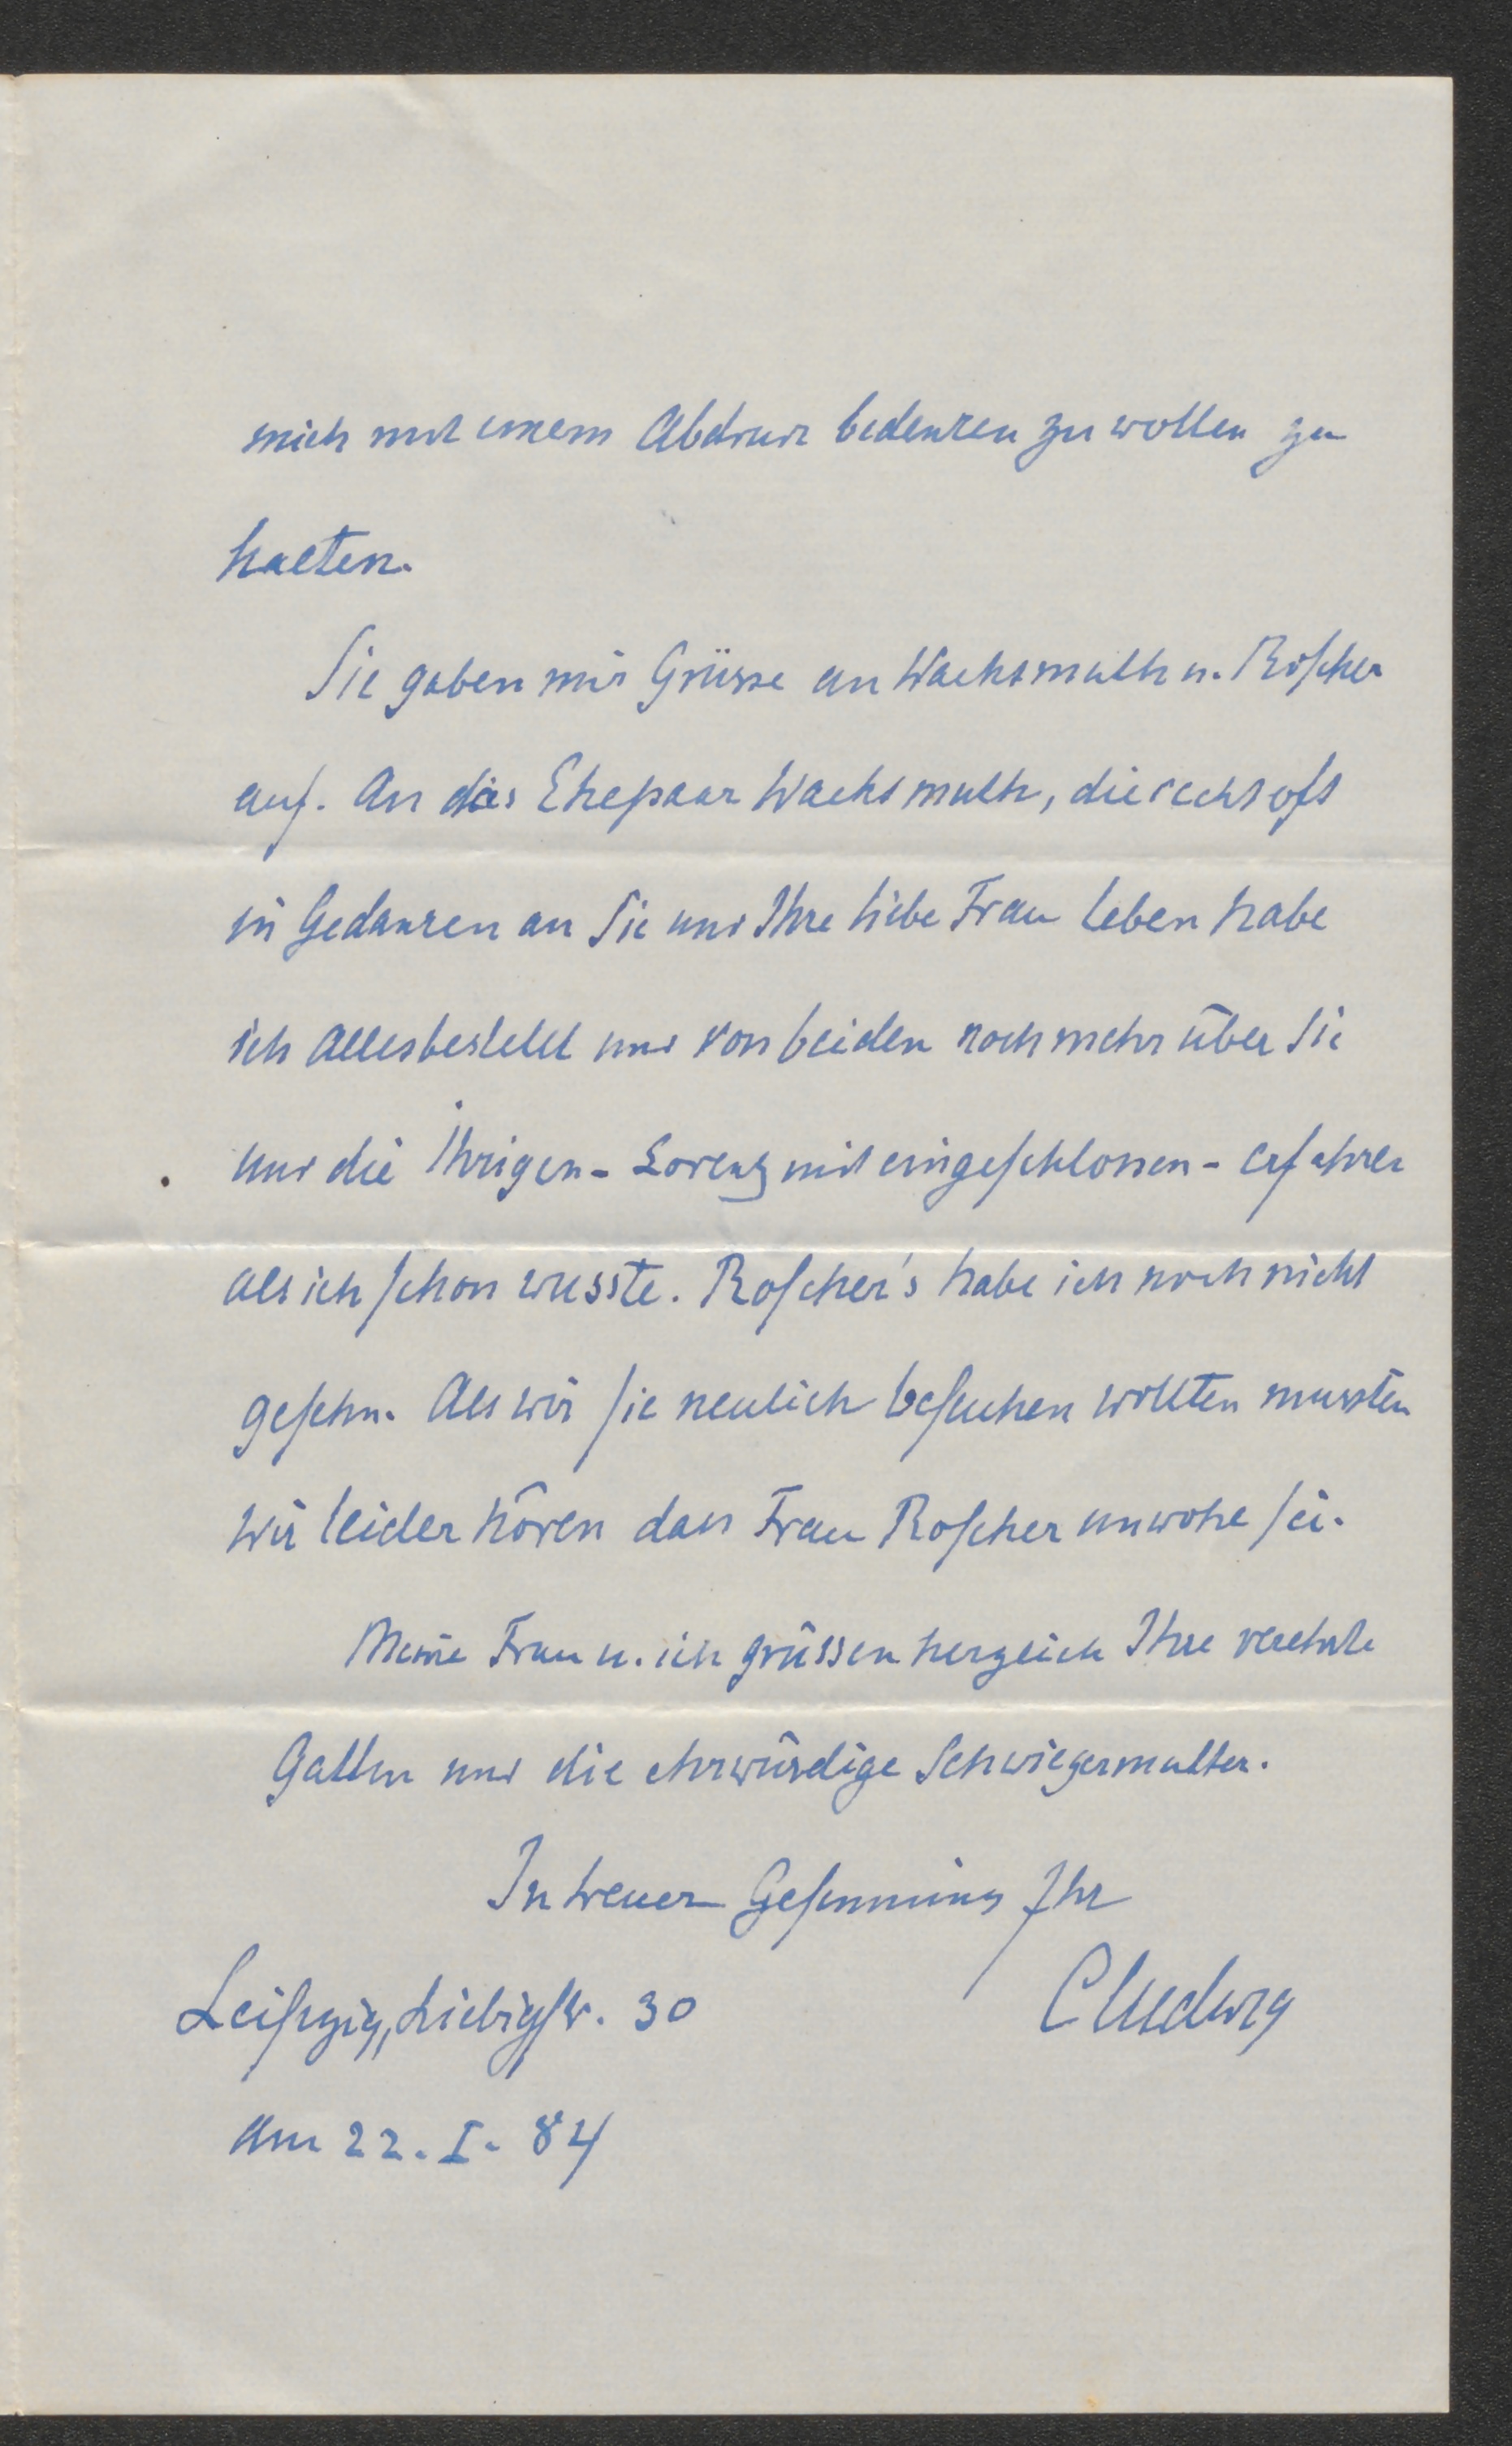 mich mit einem Abdruck bedenken zu wollen zu
halten.
Sie gaben mir Grüsse an Wachsmuth u. Roscher
auf. An das Ehepaar Wachsmuth, die recht oft
in Gedanken an Sie und Ihre liebe Frau leben habe
ich alles bestellt und von beiden noch mehr über Sie
und die Ihrigen - Lorenz mit eingeschlossen - erfahren
als ich schon wusste. Roscher's habe ich noch nicht
gesehn. Als wir sie neulich besuchen wollten mussten
wir leider hören dass Frau Roscher unwohl sei.
Meine Frau u. ich grüssen herzlich Ihre verehrte
Gattin und die ehrwürdige Schwiegermutter.
In treuer Gesinnung Ihr
Leipzig, Liebigstr. 30 CLudwig
am 22. I. 84